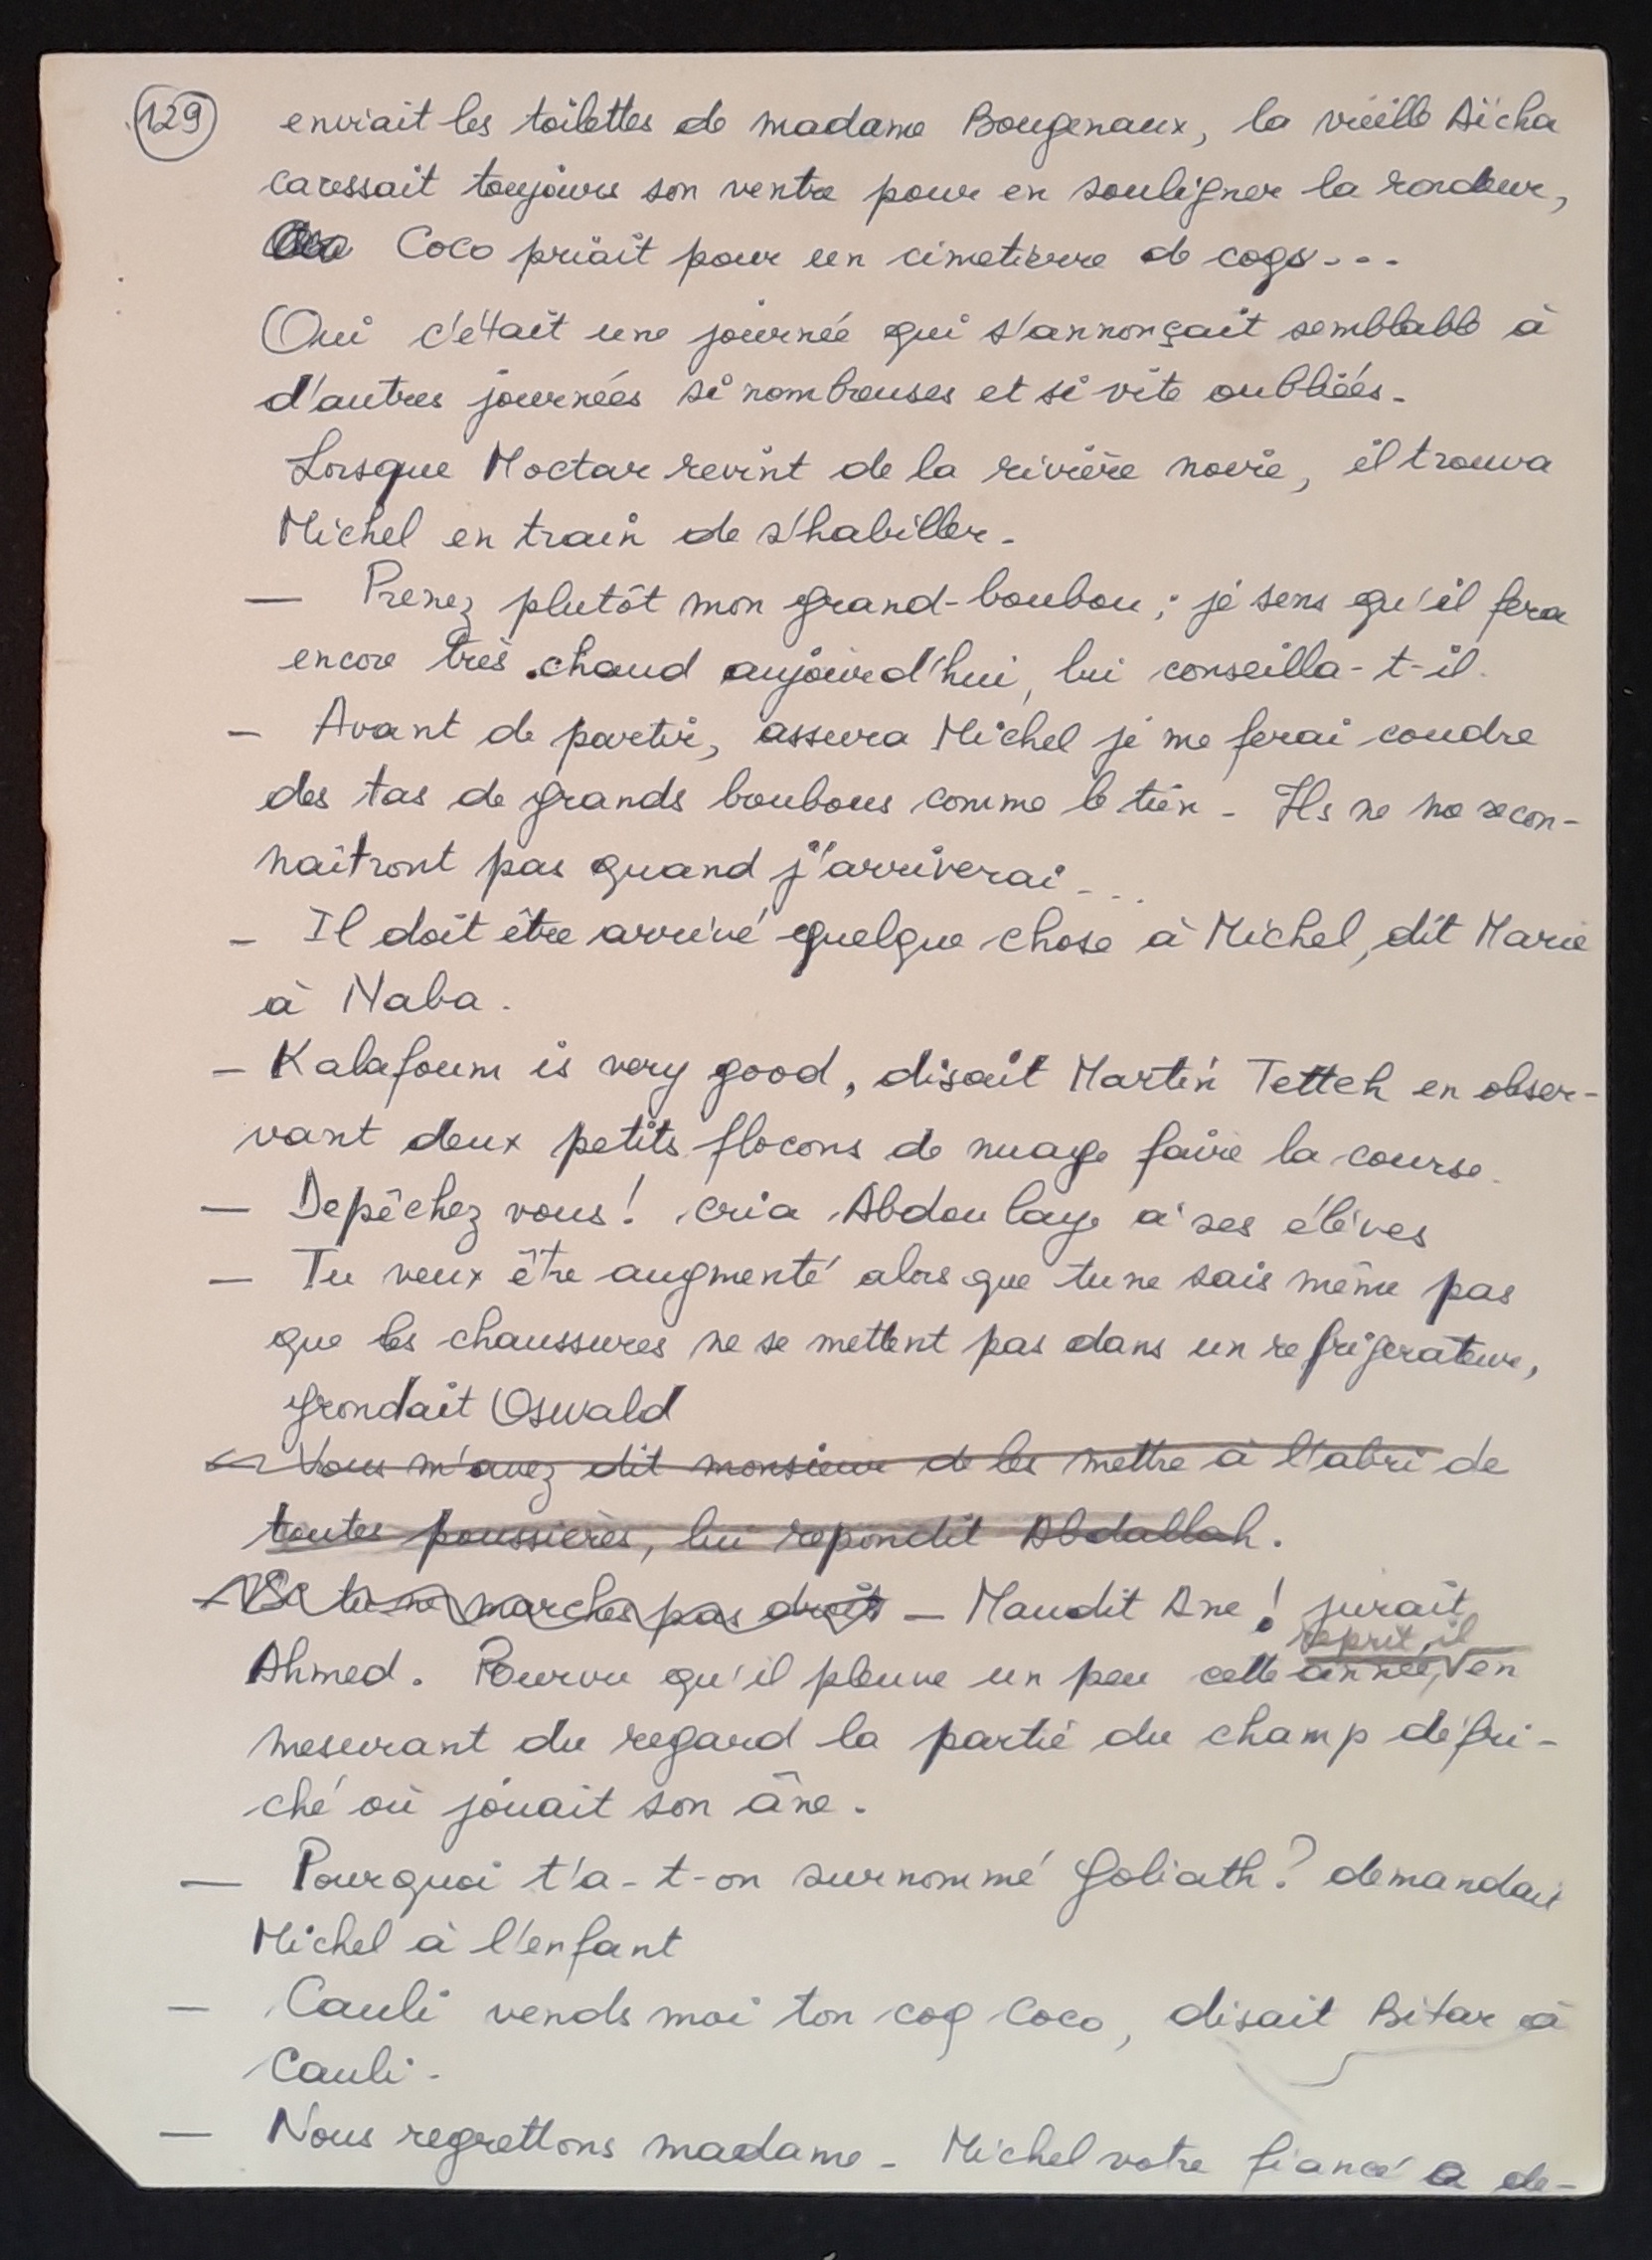 129 enviait les toilettes de madame Bougenaux, la vieille Aïcha
caressait toujours son ventre pour en souligner la rondeur,
Coco priait pour un cimetierre de coqs...
Oui c'était une journée qui s'annonçait semblable à
d'autres journées si nombreuses et si vite oubliées.
Lorsque Moctar revint de la rivière noire, il trouva
Michel en train de s'habiller.
— Prenez plutôt mon grand-boubou ; je sens qu'il fera
encore très chaud aujourd'hui, lui conseilla-t-il.
— Avant de partir, assura Michel je me ferai coudre
des tas de grands boubous comme le tien. Ils ne me recon-
naîtront pas quand j'arriverai...
— Il doit être arrivé quelque chose à Michel, dit Marie
à Naba.
— Kalafoum is very good, disait Martin Tetteh en obser-
vant deux petits flocons de nuage faire la course.
— Depêchez vous ! cria Abdoulaye à ses élèves
— Tu veux être augmenté alors que tu ne sais même pas
que les chaussures ne se mettent pas dans un refrigerateur,
grondait Oswald
— Vous m'avez dit monsieur de les mettre à l'abri de
toutes poussières, lui repondit Abdallah.
— Si tu ne marches pas droit — Maudit Ane ! jurait
reprit-il
Ahmed. Pourvu qu'il pleuve un peu cette année, en
mesurant du regard la partie du champ défri-
ché où jouait son âne.
— Pourquoi t'a-t-on surnommé Goliath ? demandait
Michel à l'enfant
— Cauli vends moi ton coq Coco, disait Bitar à
Cauli.
— Nous regrettons madame. Michel votre fiancé a de-